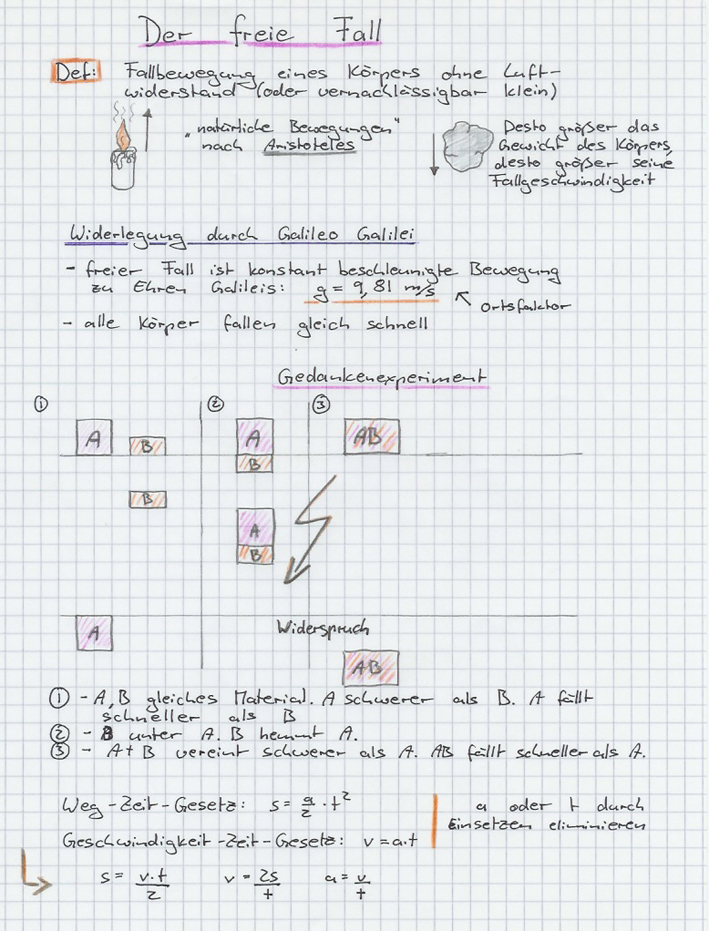 Der freie Fall
Def: Fallbewegung eines Körpers ohne Luft-
widerstand (oder vernachlässigbar klein)
„natürliche Bewegungen"
nach Aristoteles
Desto größer das
Gewicht des Körpers,
desto größer seine
Fallgeschwindigkeit
Widerlegung durch Galileo Galilei
- freier Fall ist konstant beschleunigte Bewegung
zu Ehren Galileis: g = 9,81 m/s
Ortsfaktor
- alle Körper fallen gleich schnell
Gedankenexperiment
① ② ③
A B A B AB
B
A B
Widerspruch
A AB
① - A,B gleiches Material. A schwerer als B. A fällt
schneller als B
② - B unter A. B hemmt A.
③ - A+B vereint schwerer als A. AB fällt schneller als A.
Weg-Zeit-Gesetz: s = a/2 · t²
a oder t durch
Einsetzen eliminieren
Geschwindigkeit-Zeit-Gesetz: v = a·t
s = v·t/2 v = 2s/t a = v/t